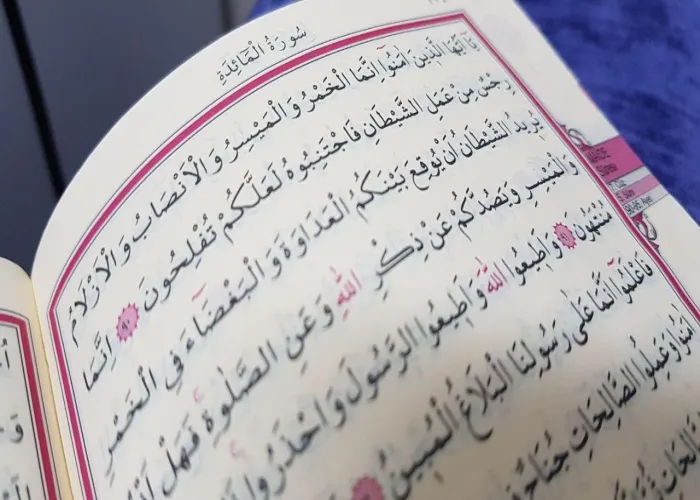 سُورَةُ الْمَائِدَةِ
يَٓا اَيُّهَا الَّذ۪ينَ اٰمَنُٓوا اِنَّمَا الْخَمْرُ وَالْمَيْسِرُ وَالْاَنْصَابُ وَالْاَزْلَامُ
رِجْسٌ مِنْ عَمَلِ الشَّيْطَانِ فَاجْتَنِبُوهُ لَعَلَّكُمْ تُفْلِحُونَ ﴿٩٠﴾ اِنَّمَا
يُر۪يدُ الشَّيْطَانُ اَنْ يُوقِعَ بَيْنَكُمُ الْعَدَاوَةَ وَالْبَغْضَٓاءَ فِي الْخَمْرِ
وَالْمَيْسِرِ وَيَصُدَّكُمْ عَنْ ذِكْرِ اللّٰهِ وَعَنِ الصَّلٰوةِۚ فَهَلْ اَنْتُمْ
مُنْتَهُونَ ﴿٩١﴾ وَاَط۪يعُوا اللّٰهَ وَاَط۪يعُوا الرَّسُولَ وَاحْذَرُواۚ
فَاعْلَمُٓوا اَنَّمَا عَلٰى رَسُولِنَا الْبَلَاغُ الْمُب۪ينُ
اٰمَنُوا وَعَمِلُوا الصَّالِحَاتِ جُنَاحٌ